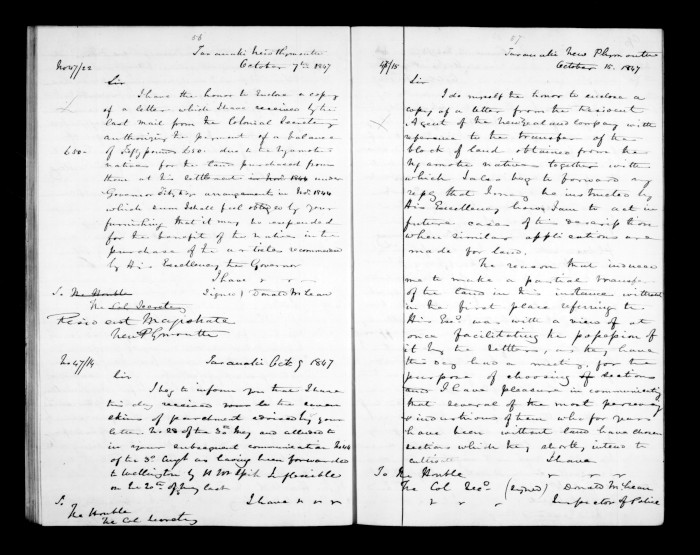 56
Taranaki New Plymouth
No 47/22 October 7th 1847
Sir
I have the honor to enclose a copy
of a letter which I have received by the
last mail from the Colonial Secretary
authorizing the payment of a balance
£50- of Fifty pounds £50. due to the Ngamotu
natives for the land purchased from
them at this settlement in Novr 1844 under
Governor Fitzroy arrangement in Novr 1844
which sum I shall feel obliged by your
furnishing that it may be expended
for the benefit of the natives in the
purchase of the articles recommended
by His Excellency the Governor
I have
Signed) Donald McLean
To The Honble
The Col Secretary
Resident Magistrate
New Plymouth
No 47/14 Taranaki Octr 9 1847
Sir
I beg to inform you that I have
this day received
skins of parchment advised by your
letter No 28 of the 3rd May and alluded to
in your subsequent communication No 44
of the 3rd Augt as having been forwarded
to Wellington by H M Ship Inflexible
on the 20th of July last
I have
To
The Honble
The Col Secretary
57
Taranaki New Plymouth
47/15 October 15. 1847
Sir
I do myself the honor to enclose a
copy of a letter from the Resident
Agent of the New Zealand Company with
reference to the transfer of the
block of land obtained from the
Ngamotu natives together with
which I also beg to forward my
reply that I may be instructed by
His Excellency how I am to act in
future cases of this description
when similar applications are
made for land.
The reason that induced
me to make a partial transfer
of the land in this instance without
in the first place referring to
His Excy was with a view of at
once facilitating the possession of
it by the settlers, as they have
this day had a meeting for the
purpose of choosing sections
and I have pleasure in communicating
that several of the most persevering
& industrious of them who for years
have been without land have chosen
sections which they shortly intend to
cultivate I have
To The Honble
The Col Secy (Signed) Donald McLean
Inspector of Police